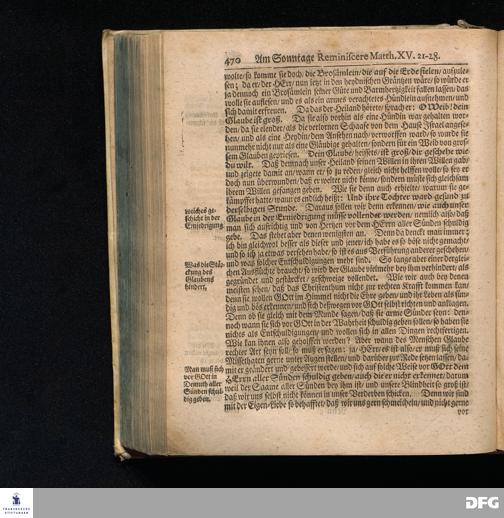 470 Am Sonntage Reminiscere Matth. XV. 21-28.
wolte/ so komme sie doch/ die Brosämlein/ die auf die Erde fielen/ aufzule-
sen; da er/ der HErr/ nun jetzt in den heydnischen Gräntzen wäre/ so würde er
ja dennoch ein Brosämlein seiner Güte und Barmhertzigkeit fallen lassen/ das
wolle sie auflesen/ und es als ein armes verachtetes Hündlein aufnehmen/ und
sich damit erfreuen. Da das der Heiland hörete/ sprach er: O Weib/ dein
Glaube ist groß. Da sie also vorhin als eine Hündin war gehalten wor-
den/ da sie elender/ als die verlornen Schaafe von dem Hause Israel angese-
hen/ und als eine Heydin/ dem Ansehen nach/ verworffen ward/ so wurde sie
nunmehr nicht nur als eine Gläubige gehalten/ sondern für ein Weib von gros-
sem Glauben gepriesen. Dein Glaube/ heissets/ ist groß/ dir geschehe wie
du wilt. Daß demnach unser Heiland seinen Willen in ihren Willen gab/
und zeigete damit an/ wann er/ so zu reden/ gleich nicht helffen wolle/ so sey er
doch nun überwunden/ daß er weiter nicht könne/ sondern müsse sich gleichsam
ihrem Willen gefangen geben. Wie sie denn auch erhielte/ warum sie ge-
kämpffet hatte/ wann es endlich heißt: Und ihre Tochter ward gesund zu
derselbigen Stunde. Daraus sollen wir denn erkennen/ wie auch unser
Glaube in der Erniedrigung müsse vollendet werden/ nemlich also/ daß
man sich aufrichtig und von Hertzen vor dem HErrn aller Sünden schuldig
gebe. Das stehet aber denen wenigsten an. Denn da denckt man immer/
ich bin gleichwol besser als dieser und jener/ ich habe es so böse nicht gemacht/
und so ich ja etwas versehen habe/ so ist es aus Verführung anderer geschehen/
und was solcher Entschuldigungen mehr sind. So lange aber einer derglei-
chen Ausflüchte braucht/ so wird der Glaube vielmehr bey ihm verhindert/ als
gegründet und gestärcket/ geschweige vollendet. Wie wir auch bey denen
meisten sehen/ daß das Christenthum nicht zur rechten Krafft kommen kan/
denn sie wollen GOtt im Himmel nicht die Ehre geben/ und ihr Leben als sün-
dig und bös erkennen/ und sich deßwegen vor GOtt selbst richten und anklagen.
Denn ob sie gleich mit dem Munde sagen/ daß sie arme Sünder seyn: den-
noch wann sie sich vor GOtt in der Wahrheit schuldig geben sollen/ so haben sie
nichts als Entschuldigungen/ und wollen sich in allen Dingen rechtfertigen.
Wie kan ihnen also geholffen werden? Aber wann des Menschen Glaube
rechter Art seyn soll/ so muß er sagen: ja/ HErr/ es ist also/ er muß sich seine
Missethaten gerne unter Augen stellen/ und darüber zur Rede setzen lassen/ da-
mit er geändert und gebessert werde/ und sich auf solche Weise vor GOtt dem
HErrn aller Sünden schuldig geben/ auch die er nicht erkennet/ darum
weil der Saame aller Sünden bey ihm ist/ und unsere Blindheit so groß ist/
daß wir uns selbst nicht können in unser Verderben schicken. Denn wir sind
mit der Eigen-Liebe so behafftet/ daß wir uns gern schmeicheln/ und nicht gerne
vor
welches ge-
schicht in der
Erniedrigung.
Was die Stär-
ckung des
Glaubens
hindert.
Man muß sich
vor GOtt in
Demuth aller
Sünden schul-
dig geben.
FRANCKESCHE
STIFTUNGEN
DFG